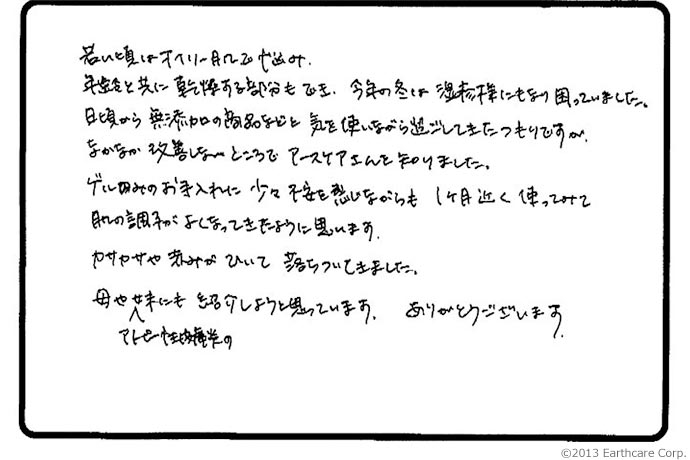 若い頃はオイリー肌で悩み、
年齢と共に乾燥する部分もでき、今年の冬は湿疹様にもなり困っていました。
日頃から無添加の商品などと気を使いながら過ごしてきたつもりですが、
なかなか改善しないところでアースケアさんを知りました。
ゲルのみのお手入れに少々不安を感じながらも1ヶ月近く使ってみて
肌の調子がよくなってきたように思います。
カサカサや赤みがひいて落ちついてきました。
母や妹にも紹介しようと思っています。ありがとうございます。
アトピー性皮膚炎の
©2013 Earthcare Corp.